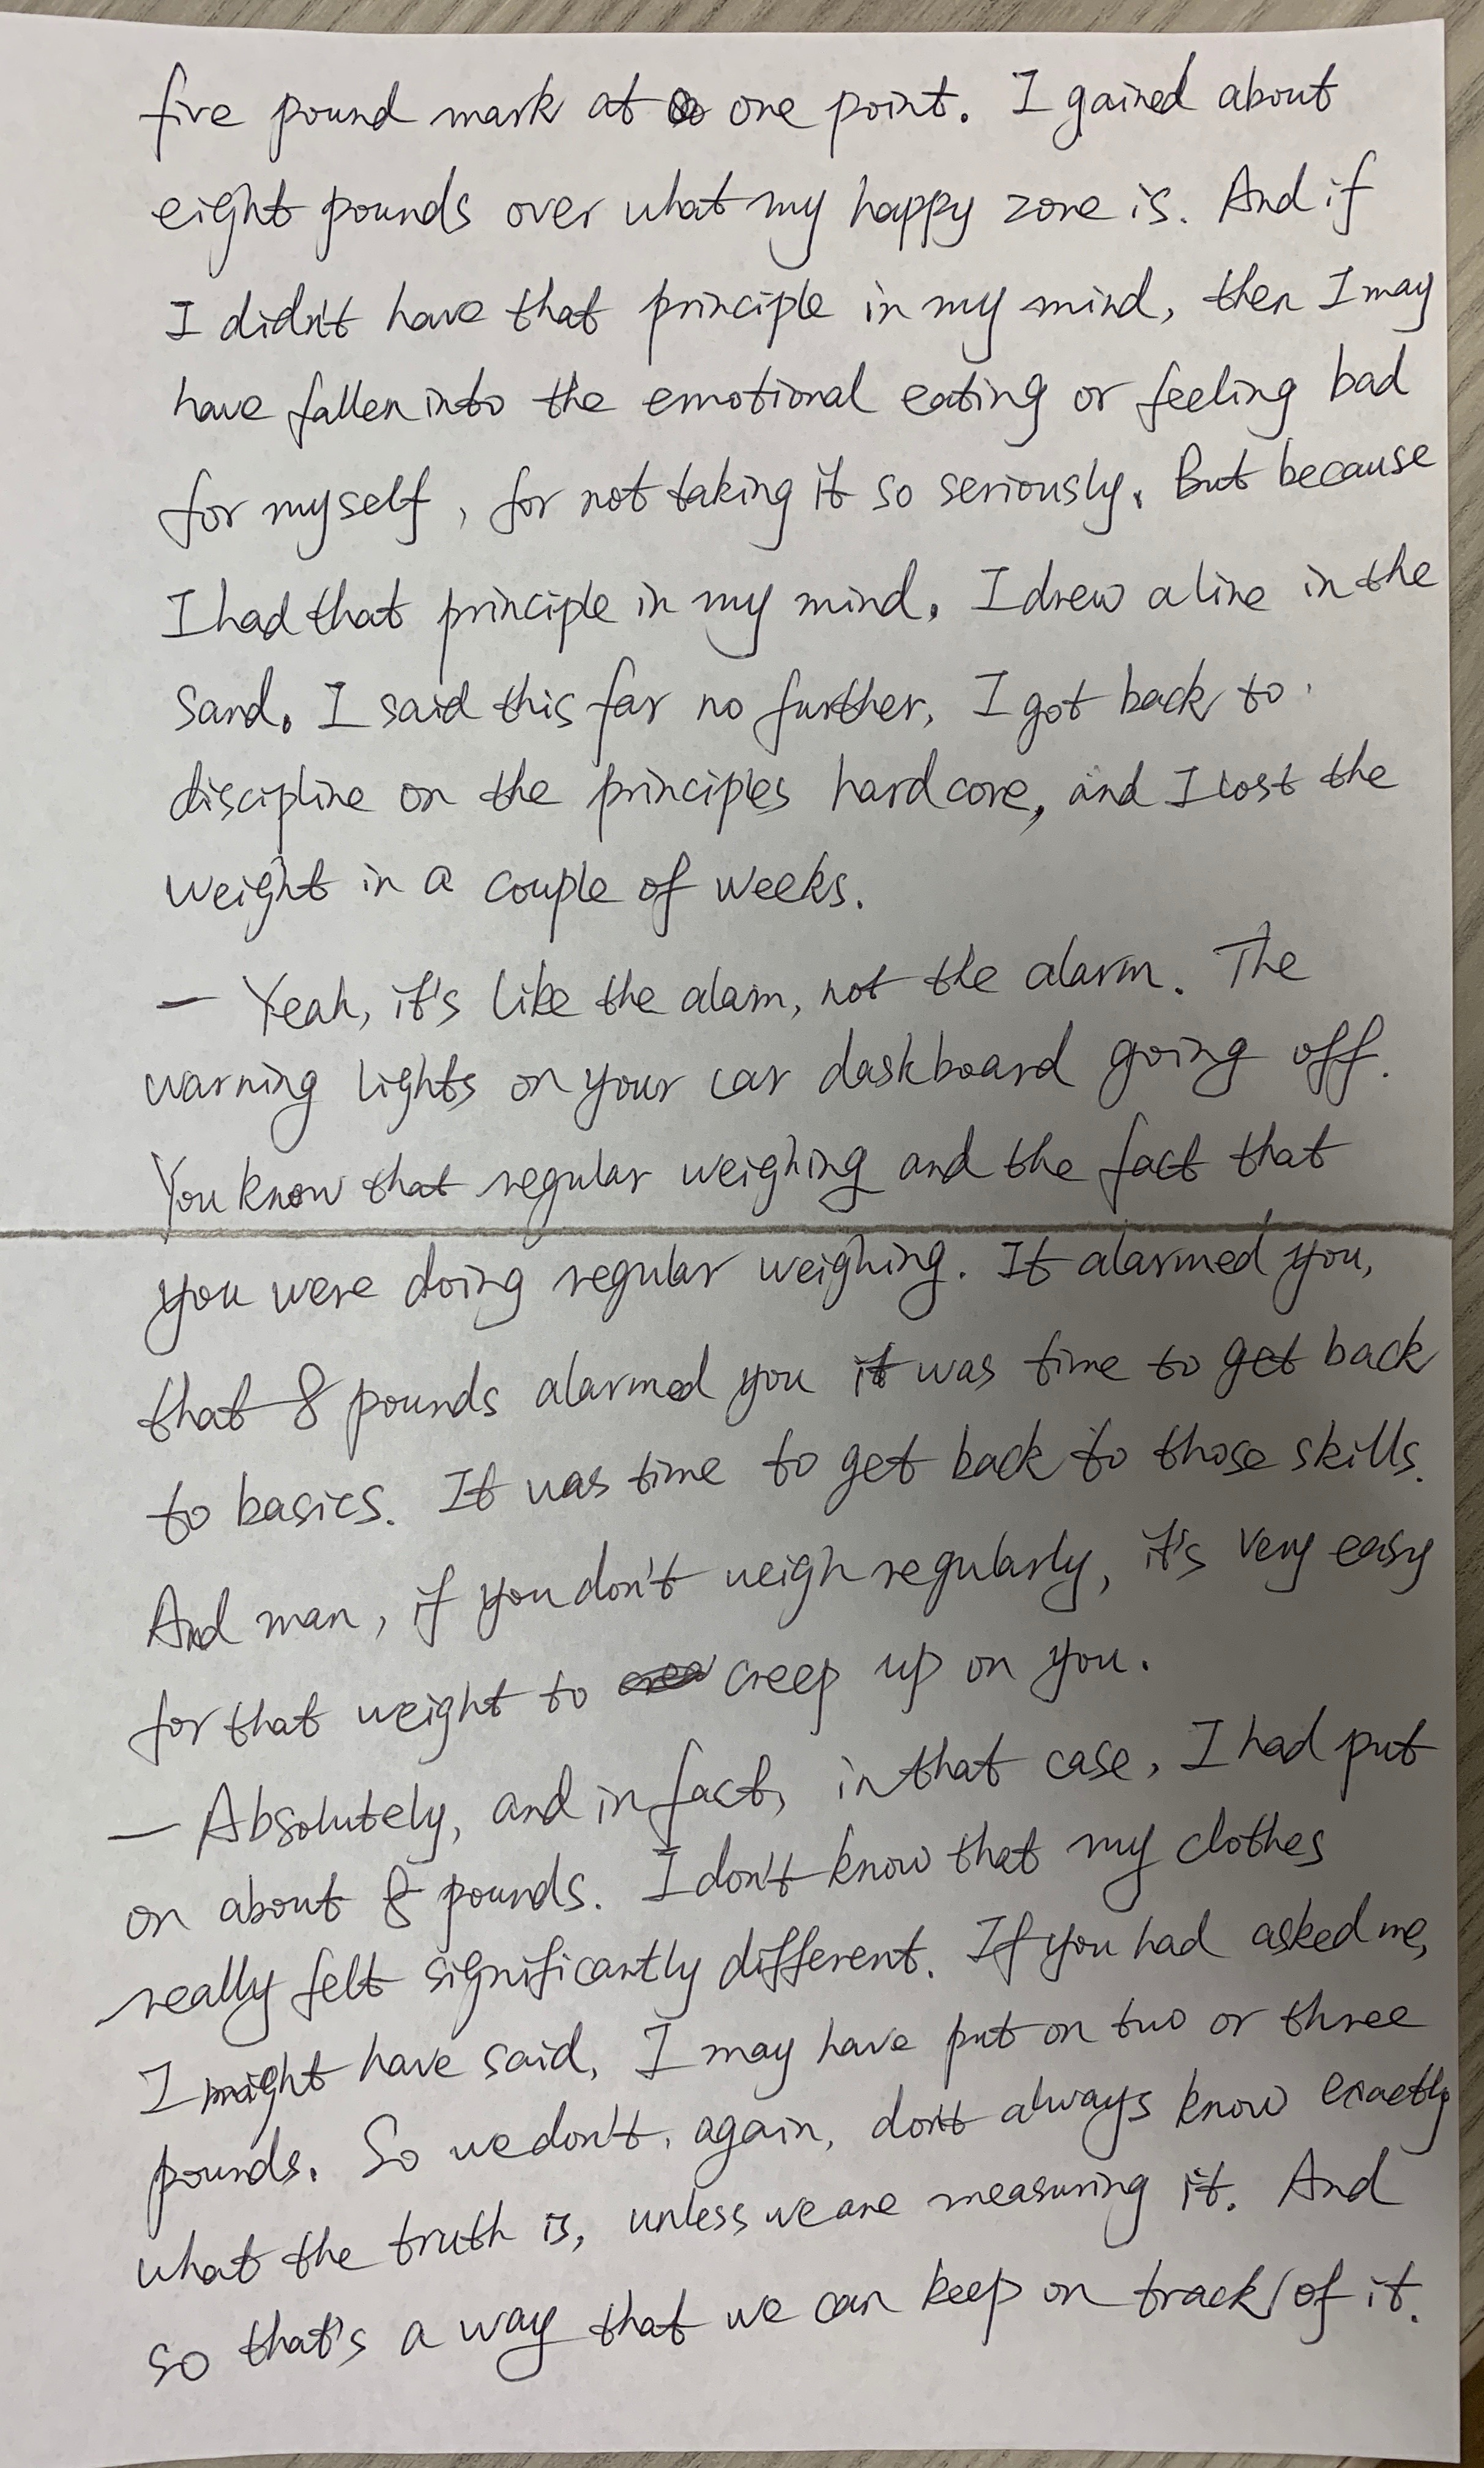 five pound mark at one point. I gained about
eight pounds over what my happy zone is. And if
I didn't have that principle in my mind, then I may
have fallen into the emotional eating or feeling bad
for myself, for not taking it so seriously. But because
I had that principle in my mind. I drew a line in the
sand. I said this far no further, I got back to
discipline on the principles hardcore, and I lost the
weight in a couple of weeks.
— Yeah, it's like the alarm, not the alarm. The
warning lights on your car daskboard going off.
You know that regular weighing and the fact that
you were doing regular weighing. It alarmed you,
that 8 pounds alarmed you it was time to get back
to basics. It was time to get back to those skills.
And man, if you don't weigh regularly, it's very easy
for that weight to creep up on you.
— Absolutely, and in fact, in that case, I had put
on about 8 pounds. I don't know that my clothes
really felt significantly different. If you had asked me,
I might have said, I may have put on two or three
pounds. So we don't, again, don't always know exactly
what the truth is, unless we are measuring it. And
so that's a way that we can keep on track of it.